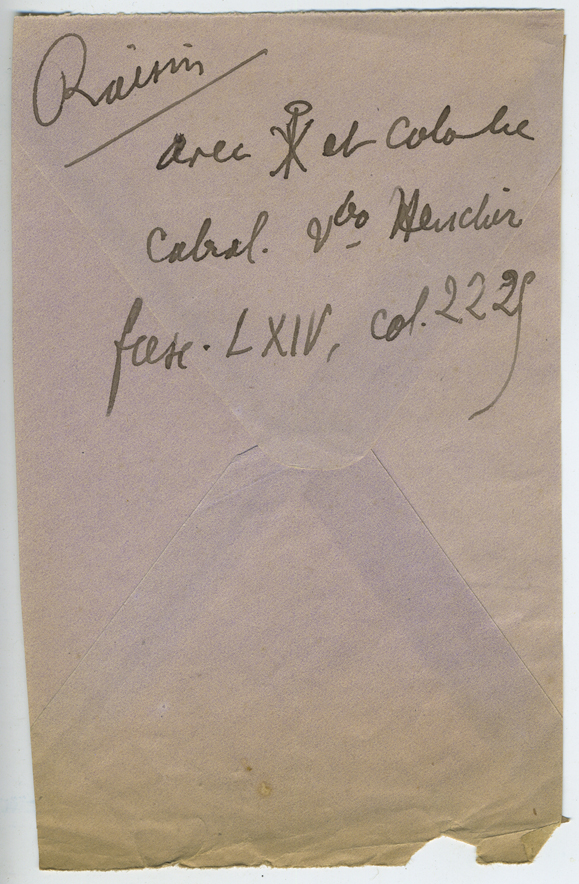 Raisin
avec ☧ et Colombe
Cabrol. vbo Henchir
fasc. LXIV, col. 2225